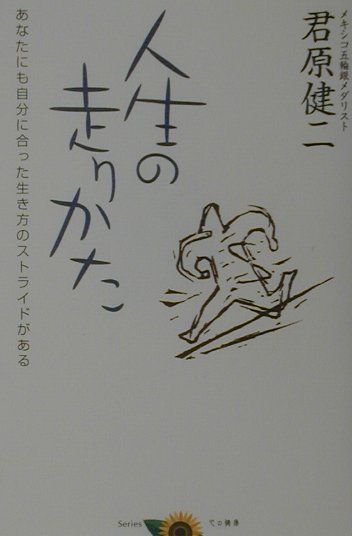 メキシコ五輪銀メダリスト
君原健二
人生の
走りかた
あなたにも自分に合った生き方のストライドがある
Series 心の健康